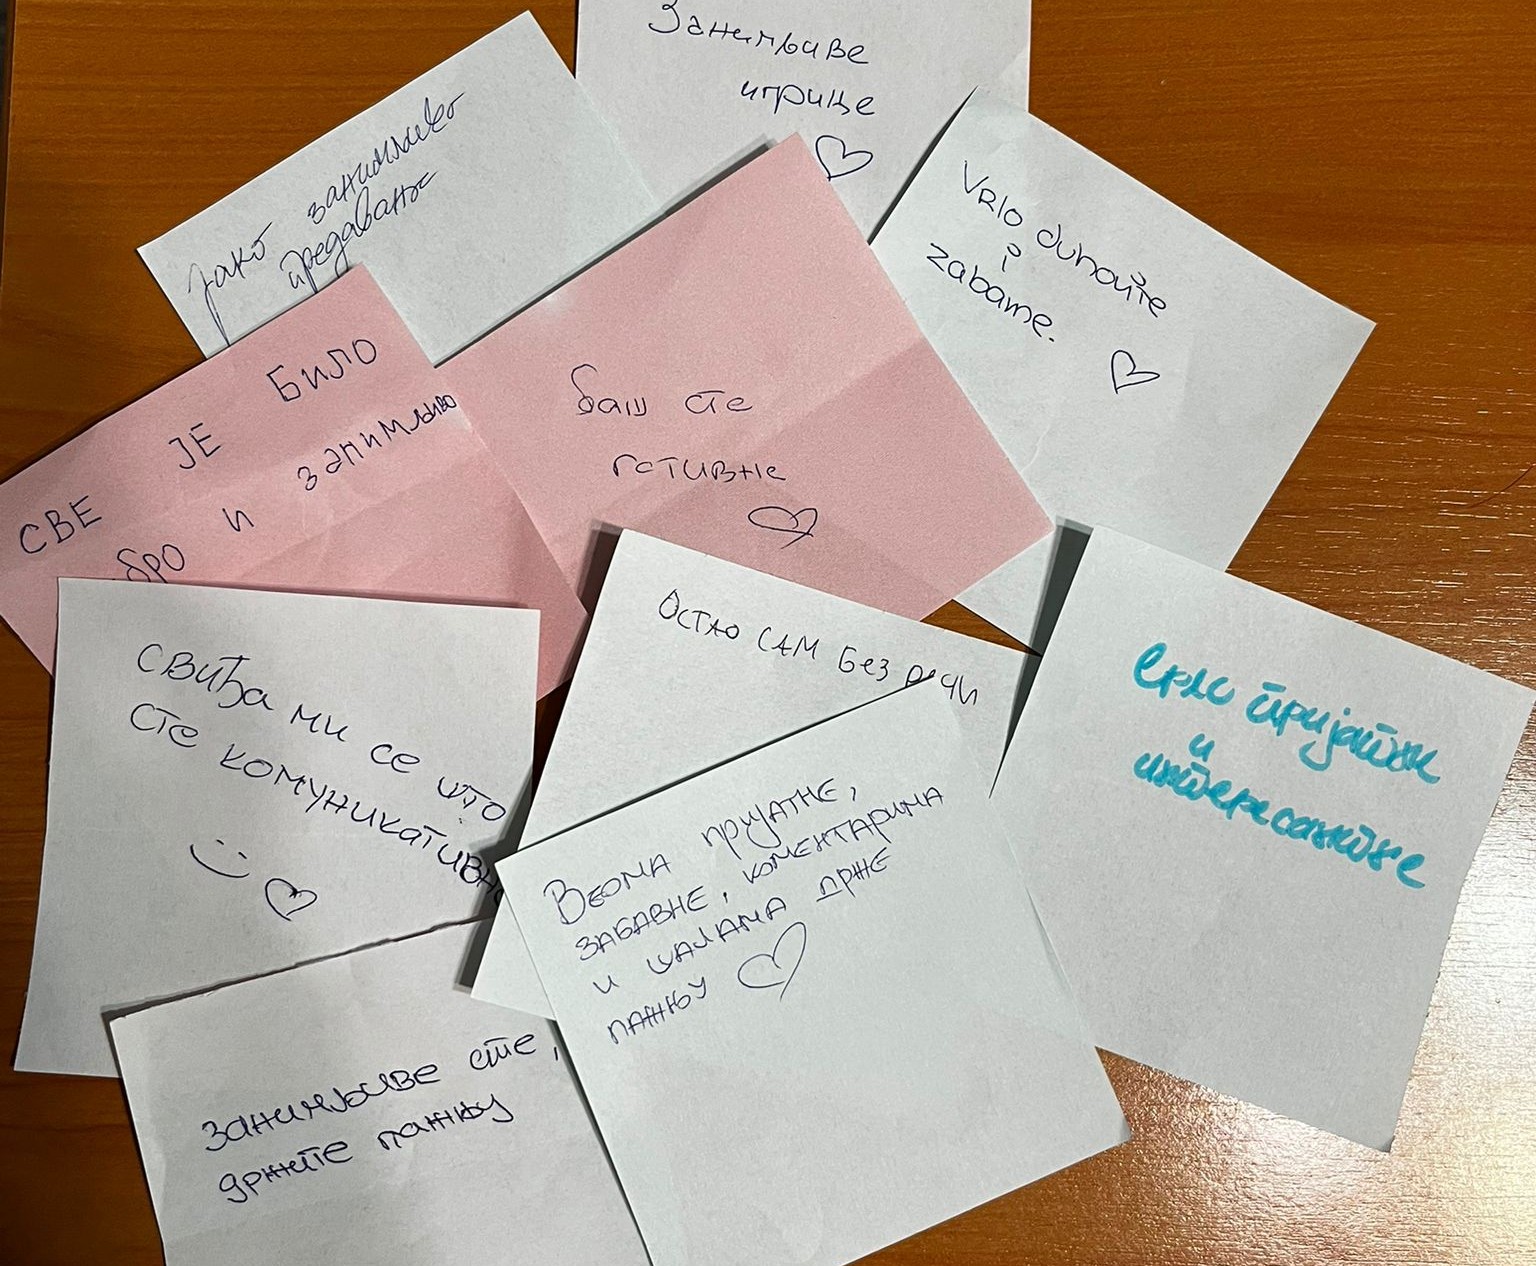 Занимљиве
игрице
јако занимљиво
предавање
Vrlo duhovite
i
zabavne.
СВЕ ЈЕ БИЛО
бро и занимљиво
баш сте
готивне
ОСТАО САМ БЕЗ РЕЧИ
СВИЂА МИ СЕ ШТО
СТЕ КОМУНИКАТИВН
Врло пријатни
и
интересантне
ВЕОМА ПРИЈАТНЕ,
ЗАБАВНЕ, КОМЕНТАРИМА
И ШАЛАМА ДРЖЕ
ПАЖЊУ
Занимљиве сте,
држите пажњу